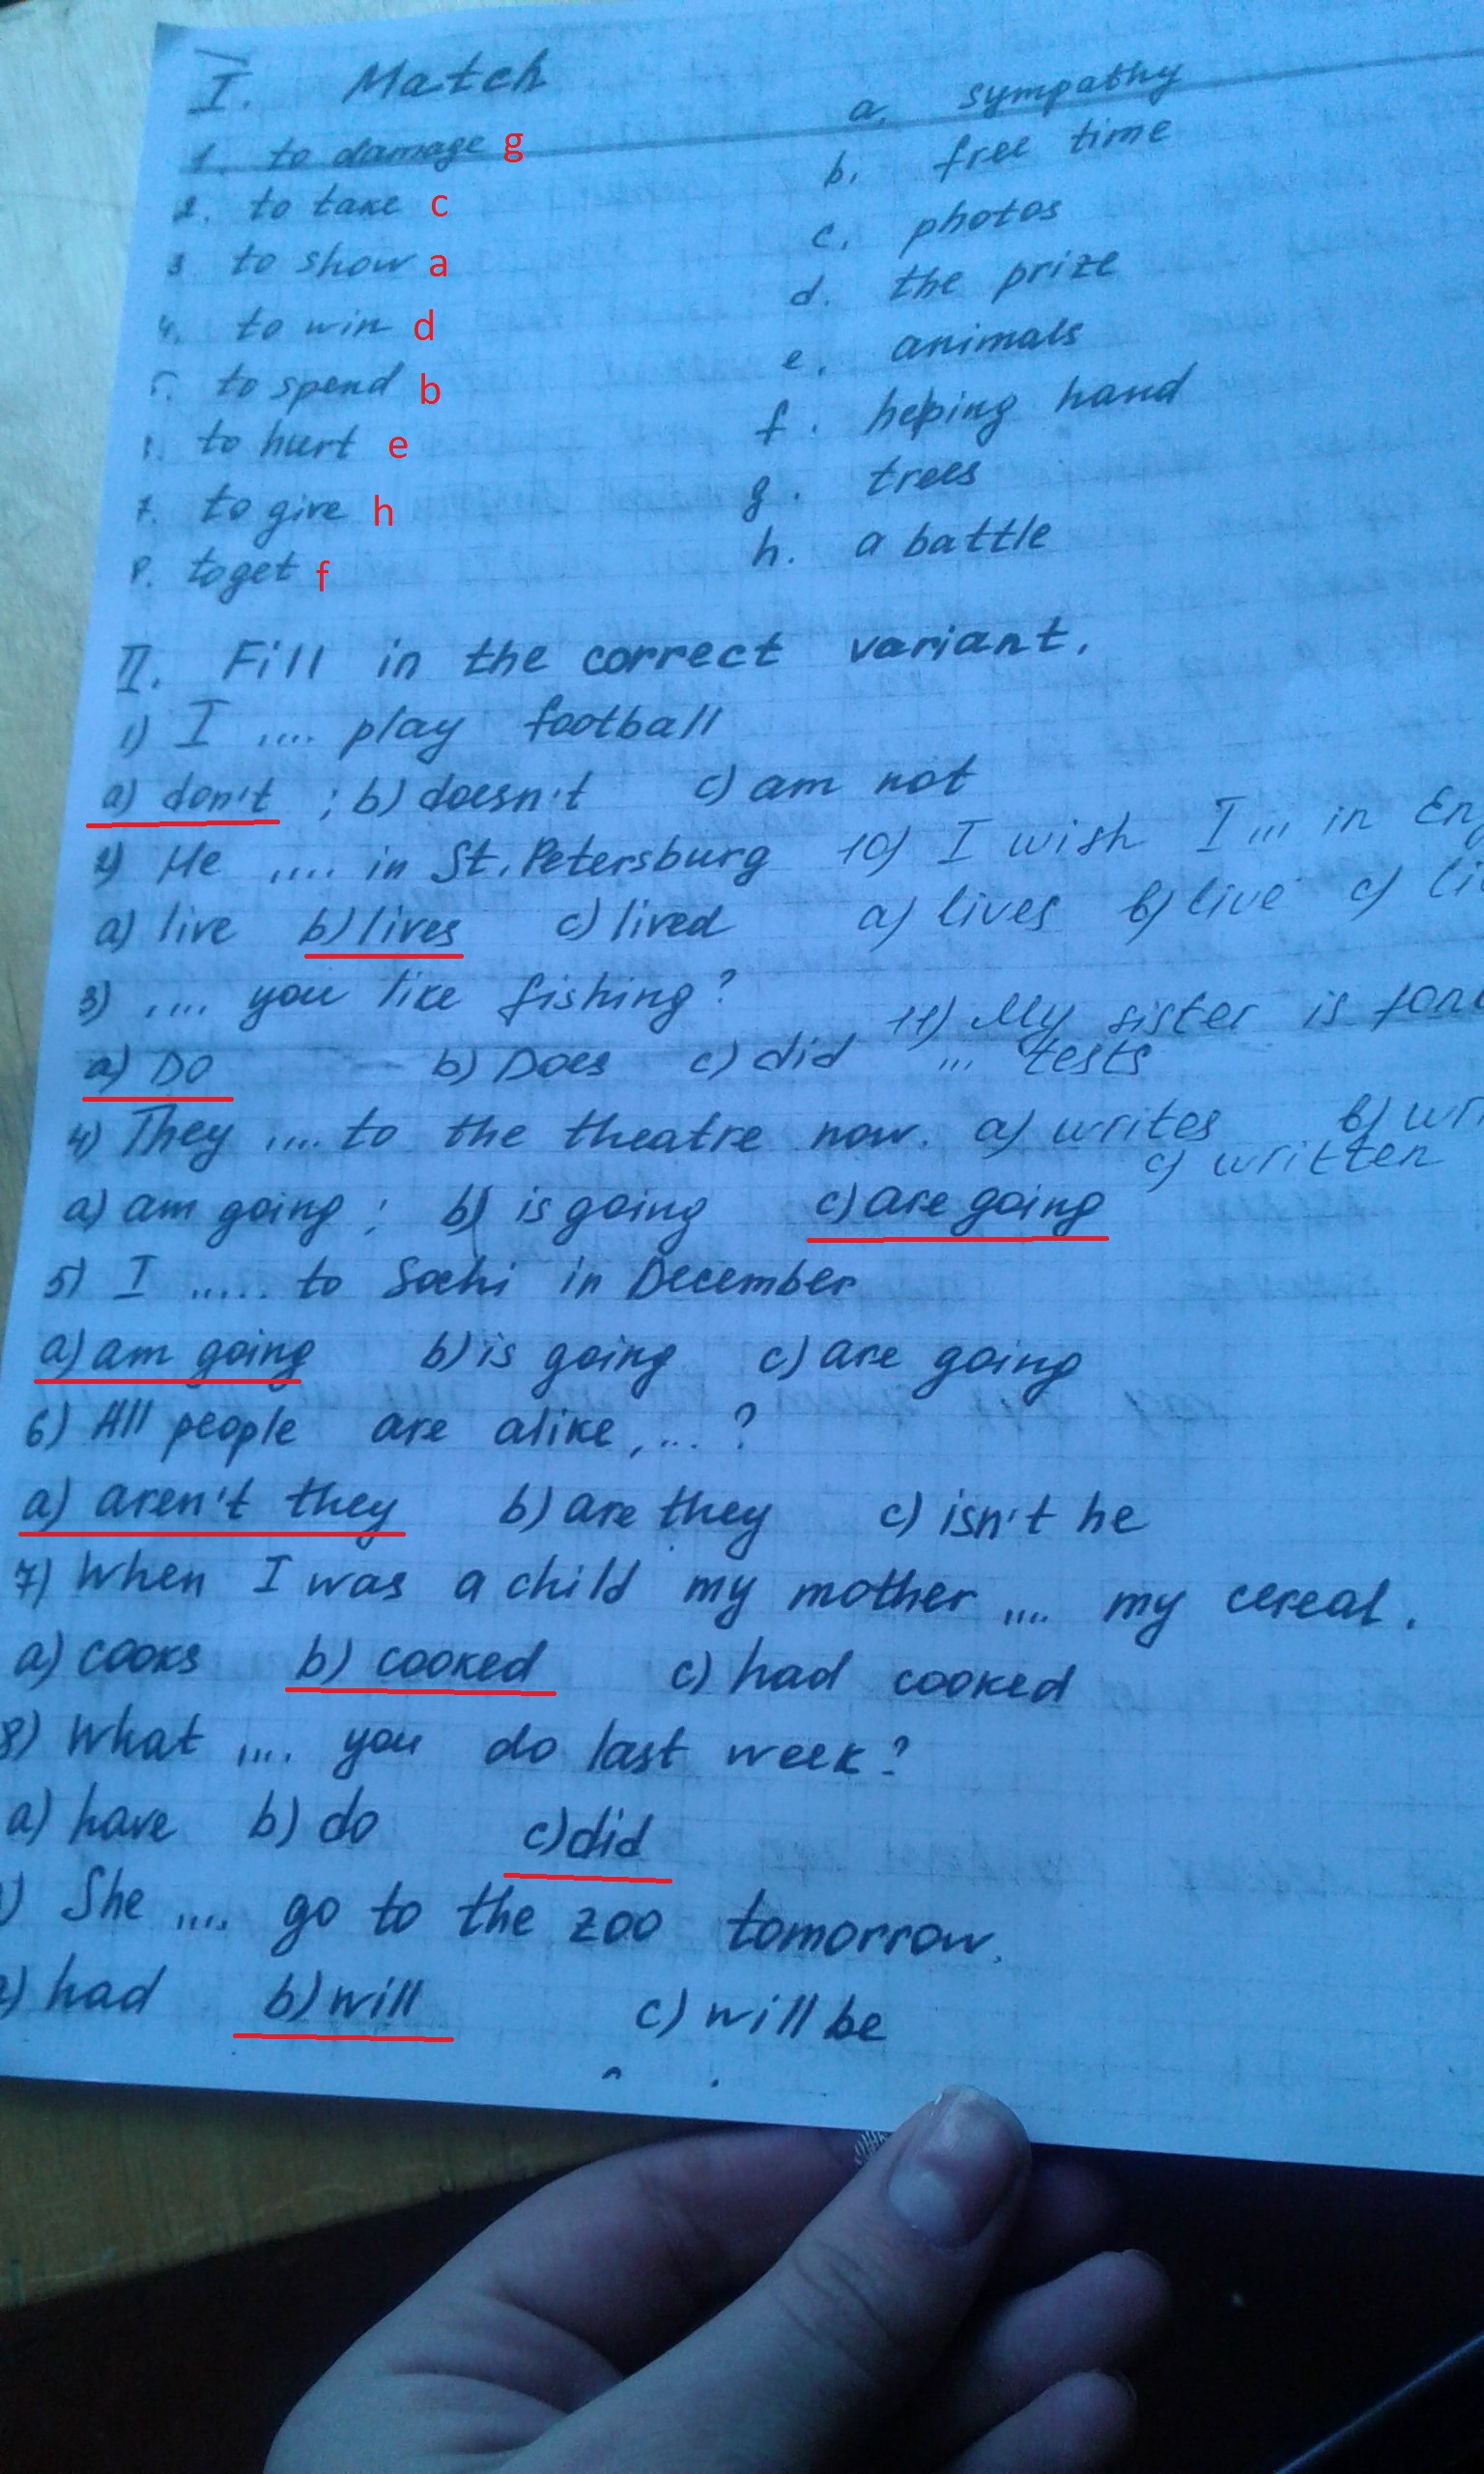 I. Match
1. to damage g
a. sympathy
2. to take c
b. free time
3. to show a
c. photos
4. to win d
d. the prize
5. to spend b
e. animals
to hurt e
f. helping hand
7. to give h
g. trees
8. to get f
h. a battle
II. Fill in the correct variant.
1) I .... play football
a) don't ; b) doesn't c) am not
2) He .... in St. Petersburg
a) live b) lives c) lived
10) I wish I ... in
a) lives b) live c)
3) .... you like fishing?
a) Do b) Does c) did
11) My sister is
... tests
4) They .... to the theatre now.
a) writes b)
c) written
a) am going ; b) is going c) are going
5) I ..... to Sochi in December
a) am going b) is going c) are going
6) All people are alike, ... ?
a) aren't they b) are they c) isn't he
7) When I was a child my mother .... my cereal.
a) cooks b) cooked c) had cooked
8) What .... you do last week?
a) have b) do c) did
) She .... go to the zoo tomorrow.
) had b) will c) will be